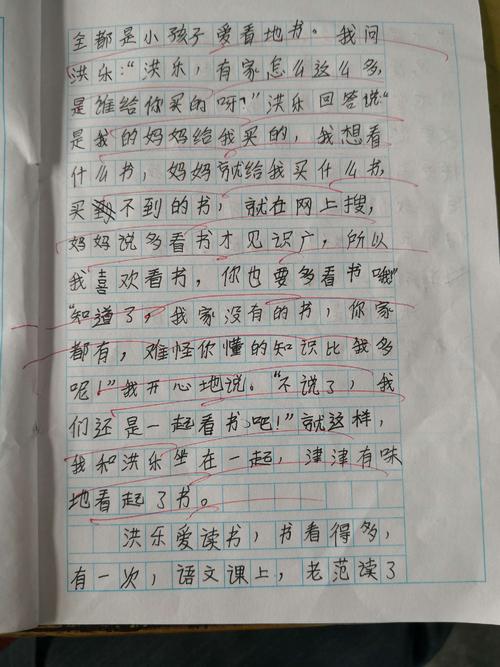 全都是小孩子爱看地书。我问
洪乐:“洪乐，有家怎么这么多，
是谁给你买的呀?”洪乐回答说“
是我的妈妈给我买的，我想看
什么书，妈妈就给我买什么书，
买不到的书，就在网上搜，
妈妈说多看书才见识广，所以
我喜欢看书，你也要多看书哦”
“知道了，我家没有的书，你家
都有，难怪你懂的知识比我多
呢!”我开心地说。“不说了，我
们还是一起看书吧!”就这样，
我和洪乐坐在一起，津津有味
地看起了书。
洪乐爱读书，书看得多，
有一次，语文课上，老范读了